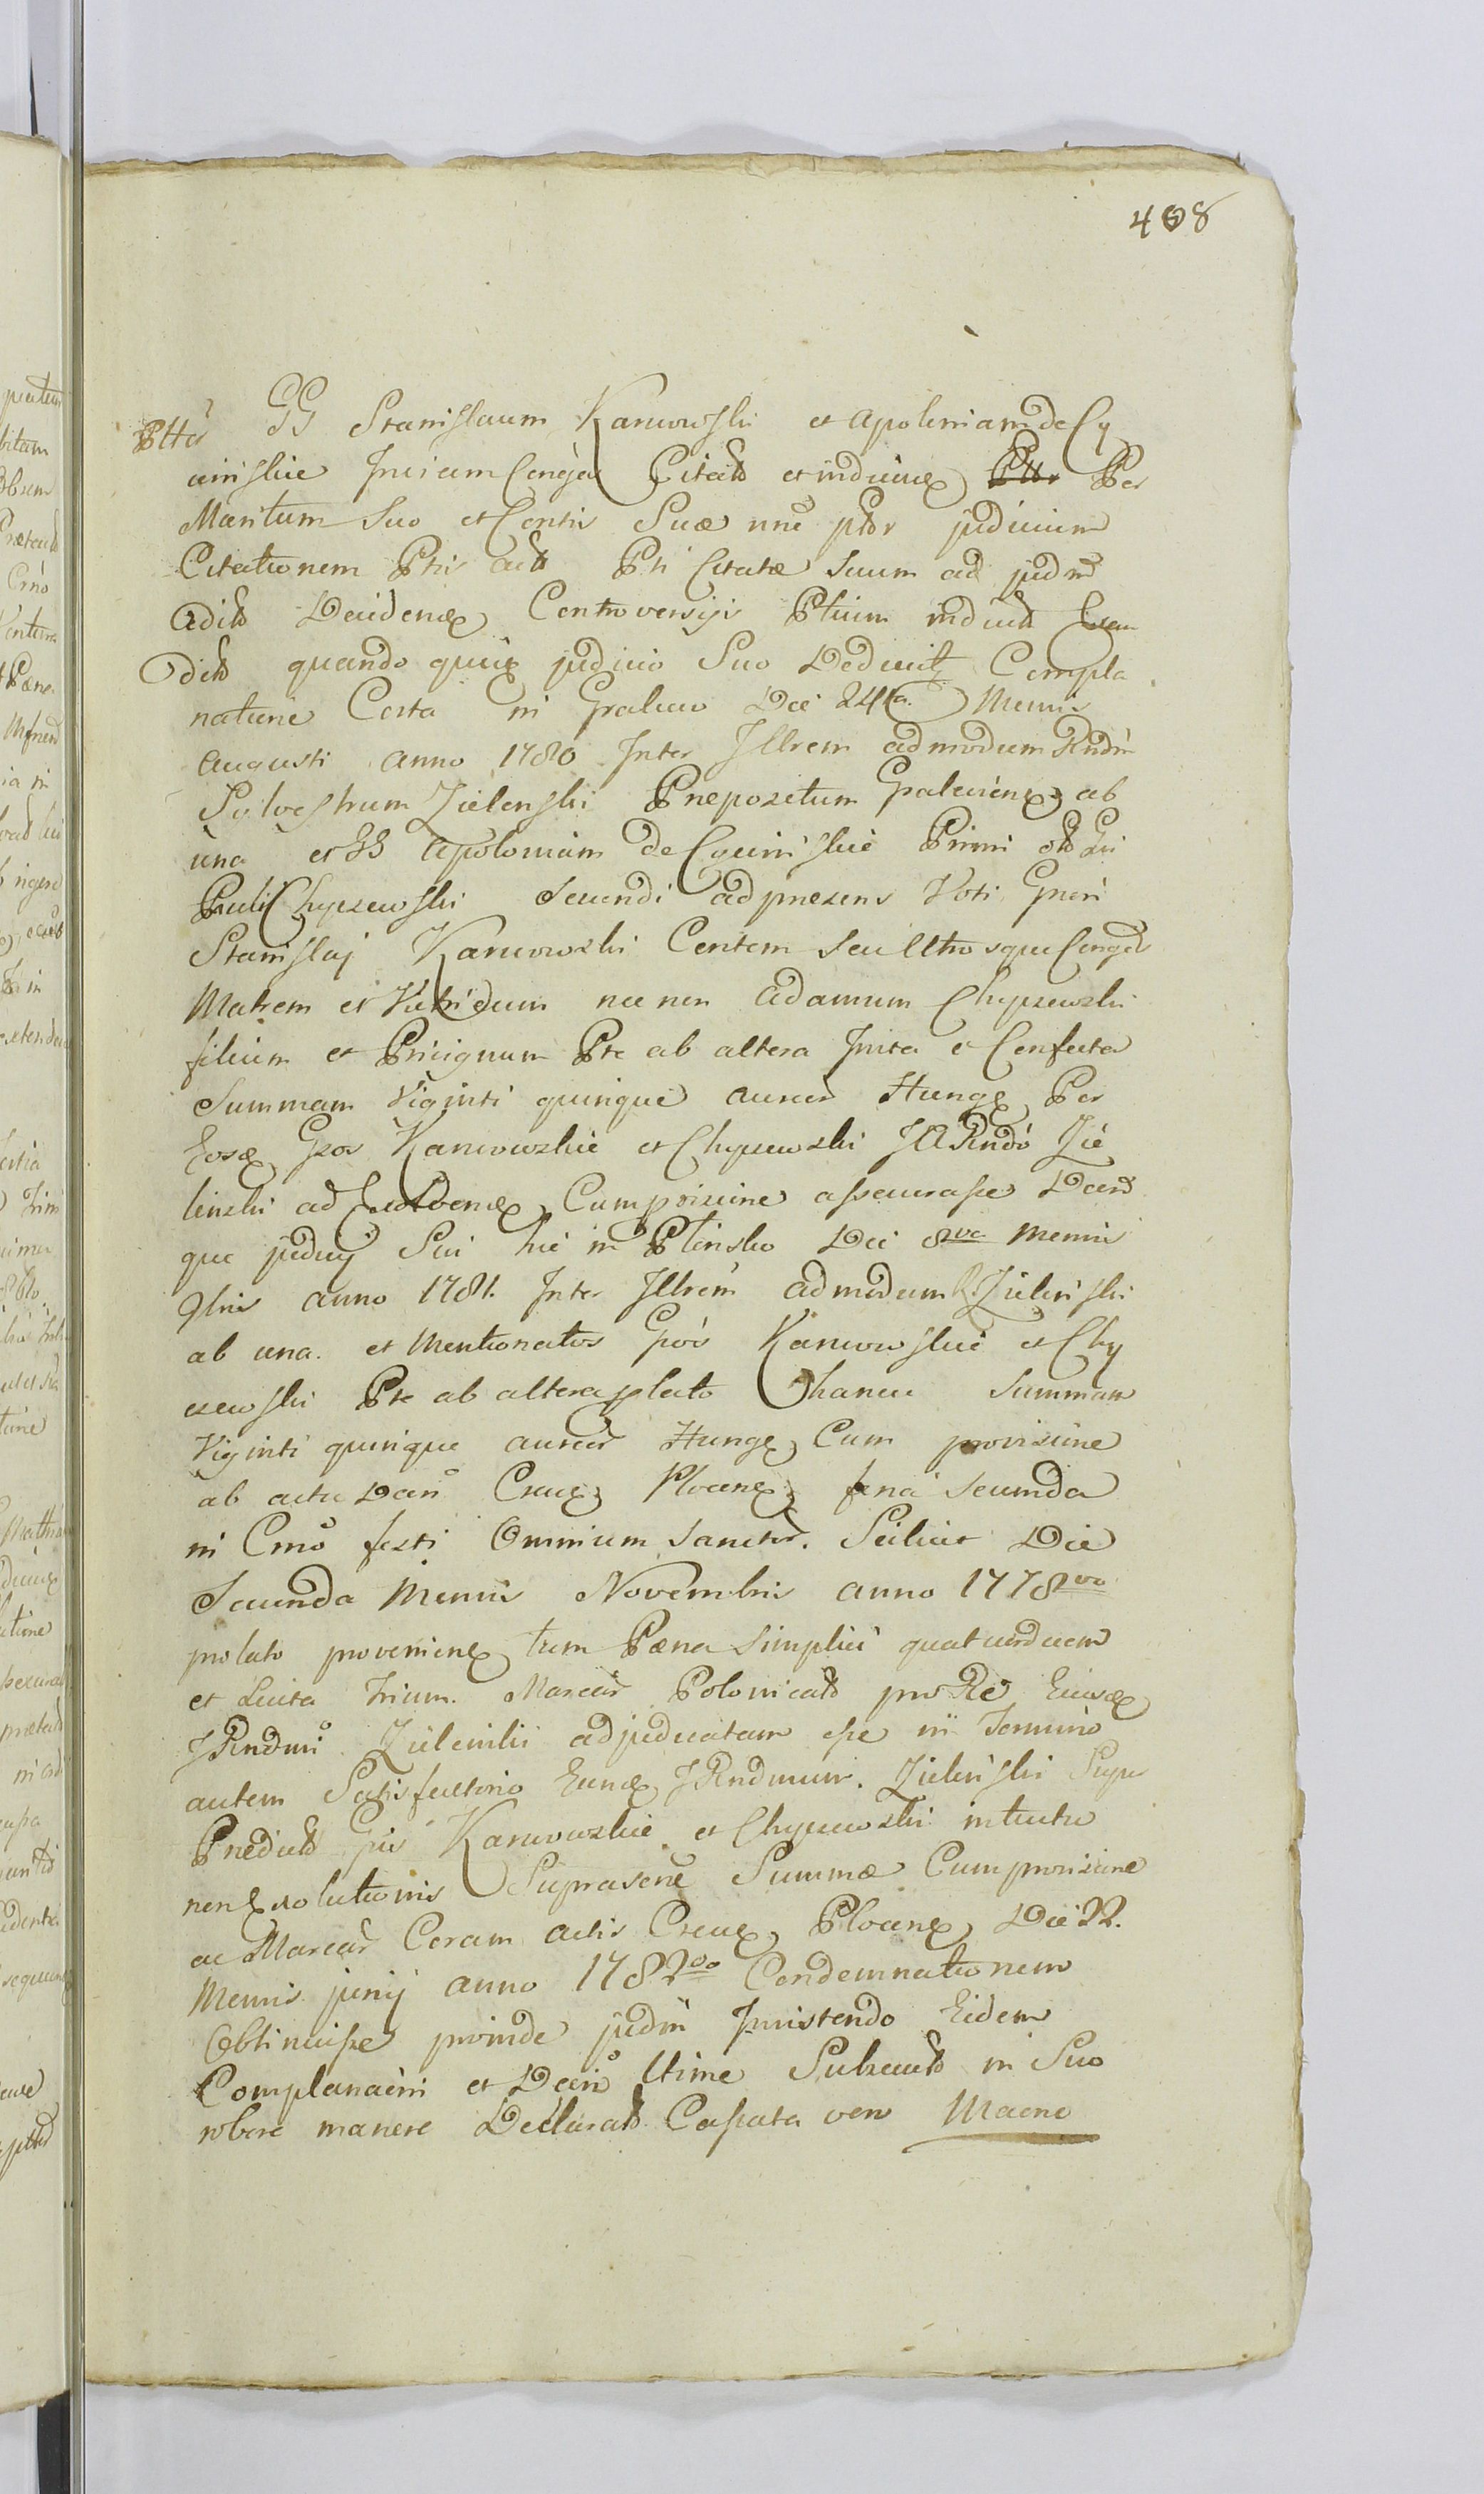 408
Ptter GG Stanislaum Karwowski et Apoloniam de Cy
winskie Invicem Conjges Citatt et inducue Per
Maritum Suo et Contis Suæ nne pttr judicium
Citationem Ptis actt Pti Citatæ Suum ad judm
Aditt Decidene Controversijs Ptium inductt
Aditt quando quidem judicio Suo Deducit Compla
natione Certa in Gralewo Die 24ta Mensis
Augusti Anno 1780 Inter Illrem admodum Rndm
Sylvestrum Zielenski Prepozitum Gralevien ab
una et GG Apoloniam de Cywinskie Primi olt Gsi
Pauli Chyczewski Secundi ad præsens Voti Gnosi
Stanislaj Karwowski Contem seu Utrosque Conges
Matrem et Vitricum nec non Adamum Chyczewski
filium et Privignum Pte ab altera Inita et Confecta
Summam Viginti quinque aureor Hung Per
Eosd Gsos Karwowskie et Chyczewski JA Rndo Zie
linski ad Exolvend Cum provisione assecurasse Decre
que judicij Sui hic in Plonsko Die 8va Mensis
9bris anno 1781. Inter Illrem admodum R Zielinski
ab una. et Mentionatos Gsos Karwowskie et Chy
czewski Pte ab altera plato hancce Summam
Viginti quinque aureor Hung Cum provisione
ab actu Dani Crux Plocen feria secunda
in Crno festi Omnium Sanctor. Scilicet Die
Secunda Mensis Novembris anno 1778vo
prolato provenien tum Pæna simplici quatuordecem
et Luita trium. Marcar Polonicatt pro Re Eiusd
JRndmi Zielinski adjudicatam esse in Termino
autem Satisfactorio Eund JRndmum. Zielinski Super
Predictt Gsis Karwowskie et Chyczewski intuitu
non Exolutionis Suprascrie Summæ Cum provisione
ac Marcar Coram actis Crux Plocen Die 22.
Mensis junij anno 1782do Condemnationem
Obtinuisse proinde judm Insistendo Eidem
Complanaoni et Dectno Utime Subsecutt in Suo
robore manere Declaratt Cassata vero Maene